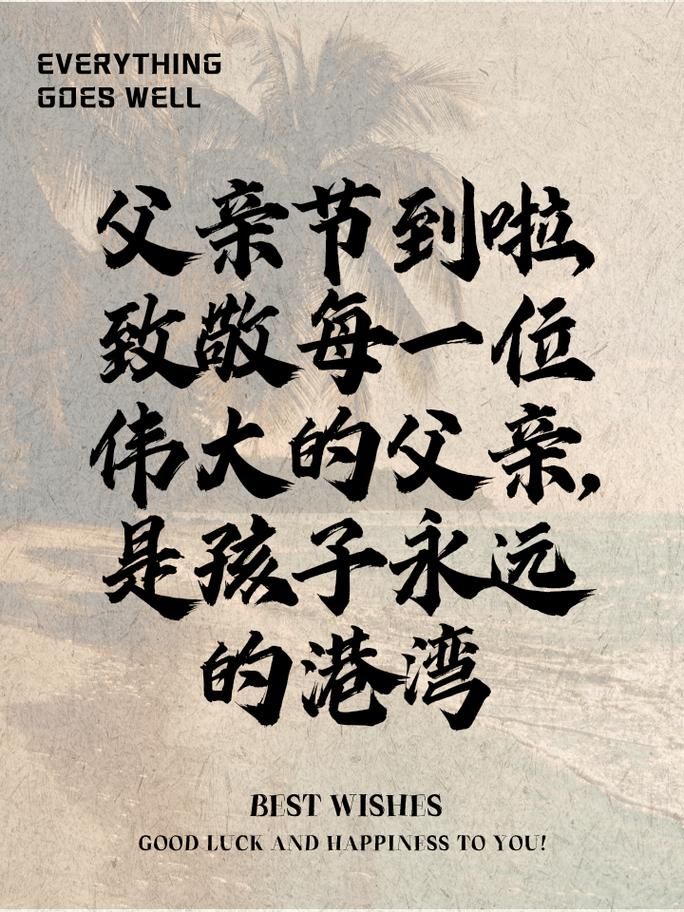 EVERYTHING
GOES WELL
父亲节到啦
致敬每一位
伟大的父亲,
是孩子永远
的港湾
BEST WISHES
GOOD LUCK AND HAPPINESS TO YOU!